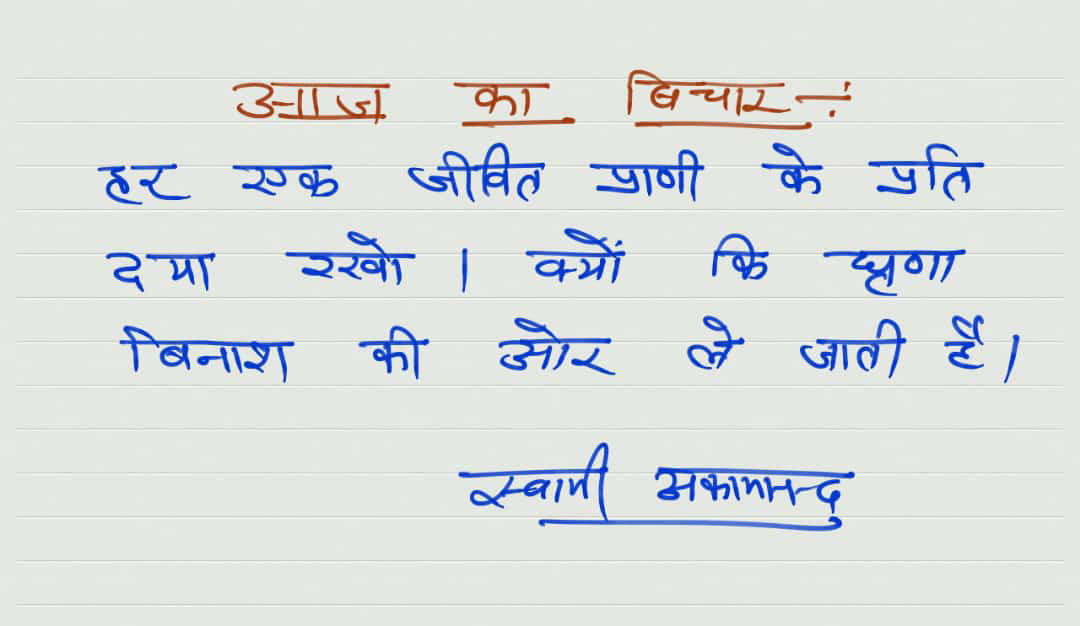 आज का बिचार −:
हर एक जीवित प्राणी के प्रति
दया रखो । क्यों कि घृणा
बिनाश की ओर ले जाती है ।
स्वामी अकामानन्द